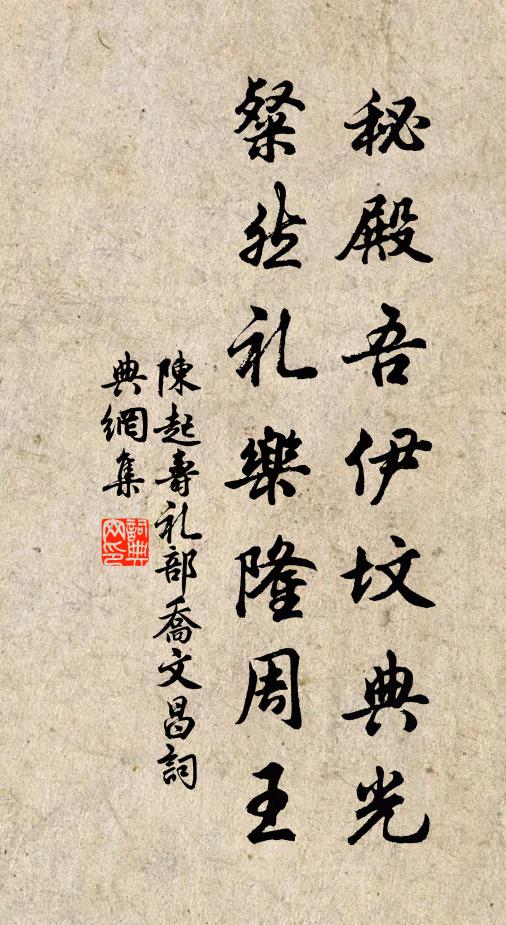 秘殿吾伊坟典光
粲然礼樂隆周王
陳起壽礼部喬文昌詞
典網集
詞典
网印